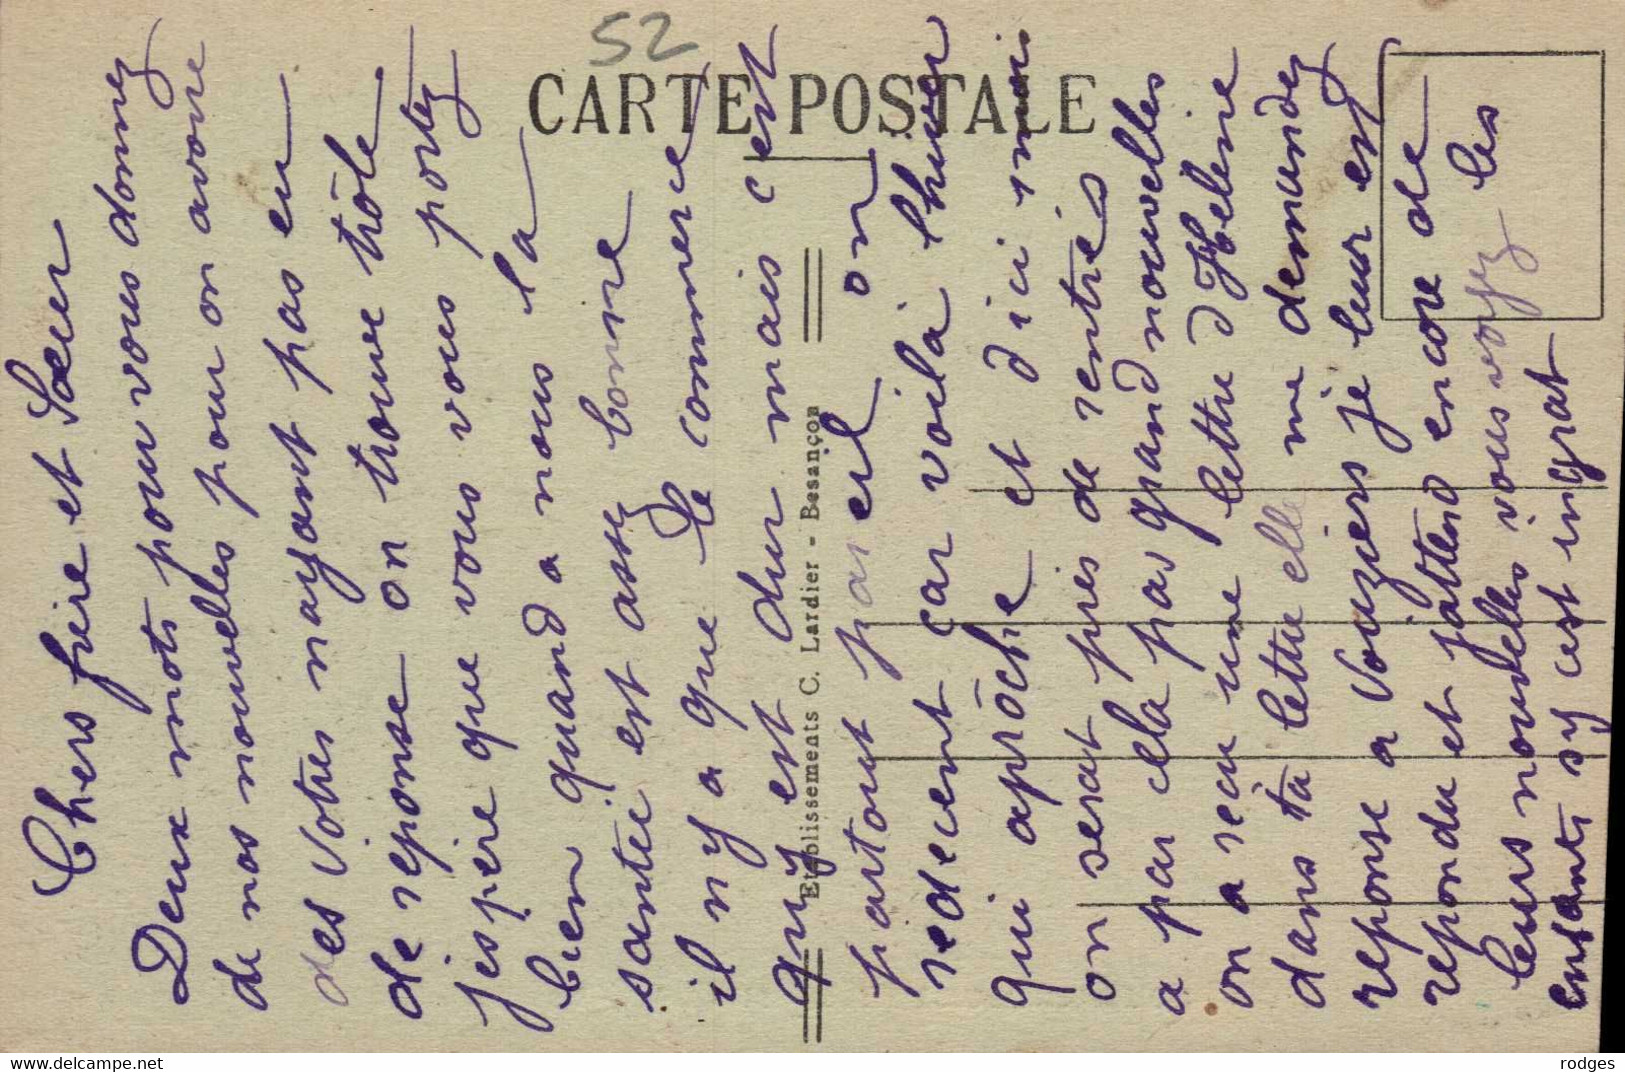 52
CARTE POSTALE
Etablissements C. Lardier - Besançon
Chers frère et Sœur
Deux mots pour vous donnez
de nos nouvelles pour on avoire
des Votres nayant pas eu
de réponse on trouve trôle
jespère que vous vous portez
bien quand a nous la
santée est assez bonne
il ny a que le commerce
qui est dur mais cest
partout pareil on
redecent car voila lhiver
qui aprôche et dici mois
on serat près de rentrés
a par cela pas grand nouvelles
on a reçu une lettre dHeleine
dans ta lettre elle me demandez
reponse a Vouziers je leur est
repondu et jattend encore de
leurs nouvelles vous voyez les
enfants sy cest ingrat
https://www.delcampe.net
rodges